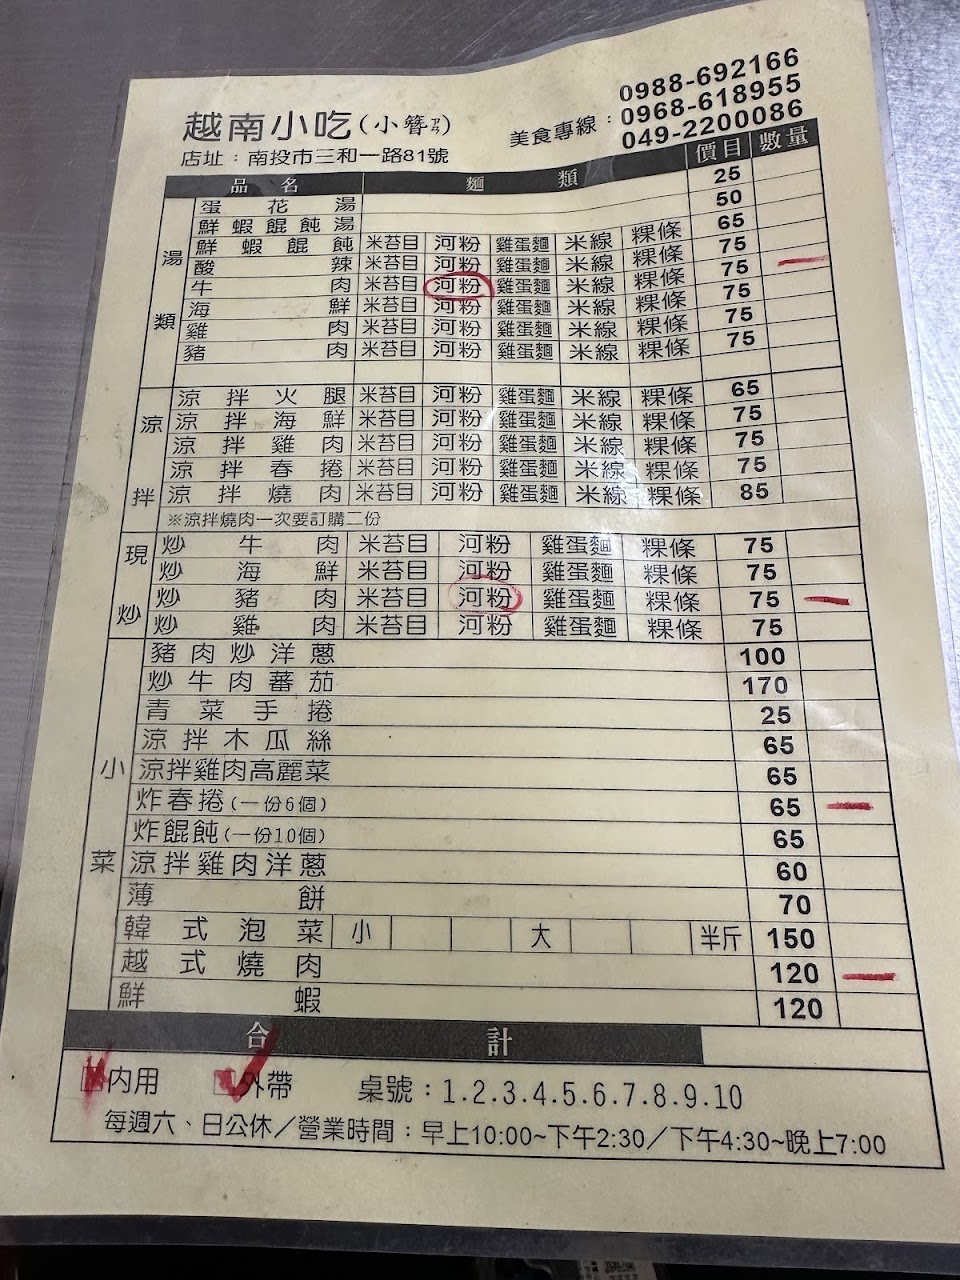 越南小吃(小簪ㄗㄢ)
美食專線：
0988-692166
0968-618955
049-2200086
店址：南投市三和一路81號
品名 麵類 價目 數量
湯類
蛋花湯 25
鮮蝦餛飩湯 50
鮮蝦餛飩 米苔目 河粉 雞蛋麵 米線 粿條 65
酸辣 米苔目 河粉 雞蛋麵 米線 粿條 75
牛肉 米苔目 河粉 雞蛋麵 米線 粿條 75
海鮮 米苔目 河粉 雞蛋麵 米線 粿條 75
雞肉 米苔目 河粉 雞蛋麵 米線 粿條 75
豬肉 米苔目 河粉 雞蛋麵 米線 粿條 75
涼拌
涼拌火腿 米苔目 河粉 雞蛋麵 米線 粿條 65
涼拌海鮮 米苔目 河粉 雞蛋麵 米線 粿條 75
涼拌雞肉 米苔目 河粉 雞蛋麵 米線 粿條 75
涼拌春捲 米苔目 河粉 雞蛋麵 米線 粿條 75
涼拌燒肉 米苔目 河粉 雞蛋麵 米線 粿條 85
※涼拌燒肉一次要訂購二份
現炒
炒牛肉 米苔目 河粉 雞蛋麵 粿條 75
炒海鮮 米苔目 河粉 雞蛋麵 粿條 75
炒豬肉 米苔目 河粉 雞蛋麵 粿條 75
炒雞肉 米苔目 河粉 雞蛋麵 粿條 75
小菜
豬肉炒洋蔥 100
炒牛肉蕃茄 170
青菜手捲 25
涼拌木瓜絲 65
涼拌雞肉高麗菜 65
炸春捲(一份6個) 65
炸餛飩(一份10個) 65
涼拌雞肉洋蔥 60
薄餅 70
韓式泡菜 小 大 半斤 150
越式燒肉 120
鮮蝦 120
合計
內用 外帶 桌號：1.2.3.4.5.6.7.8.9.10
每週六、日公休／營業時間：早上10:00~下午2:30／下午4:30~晚上7:00